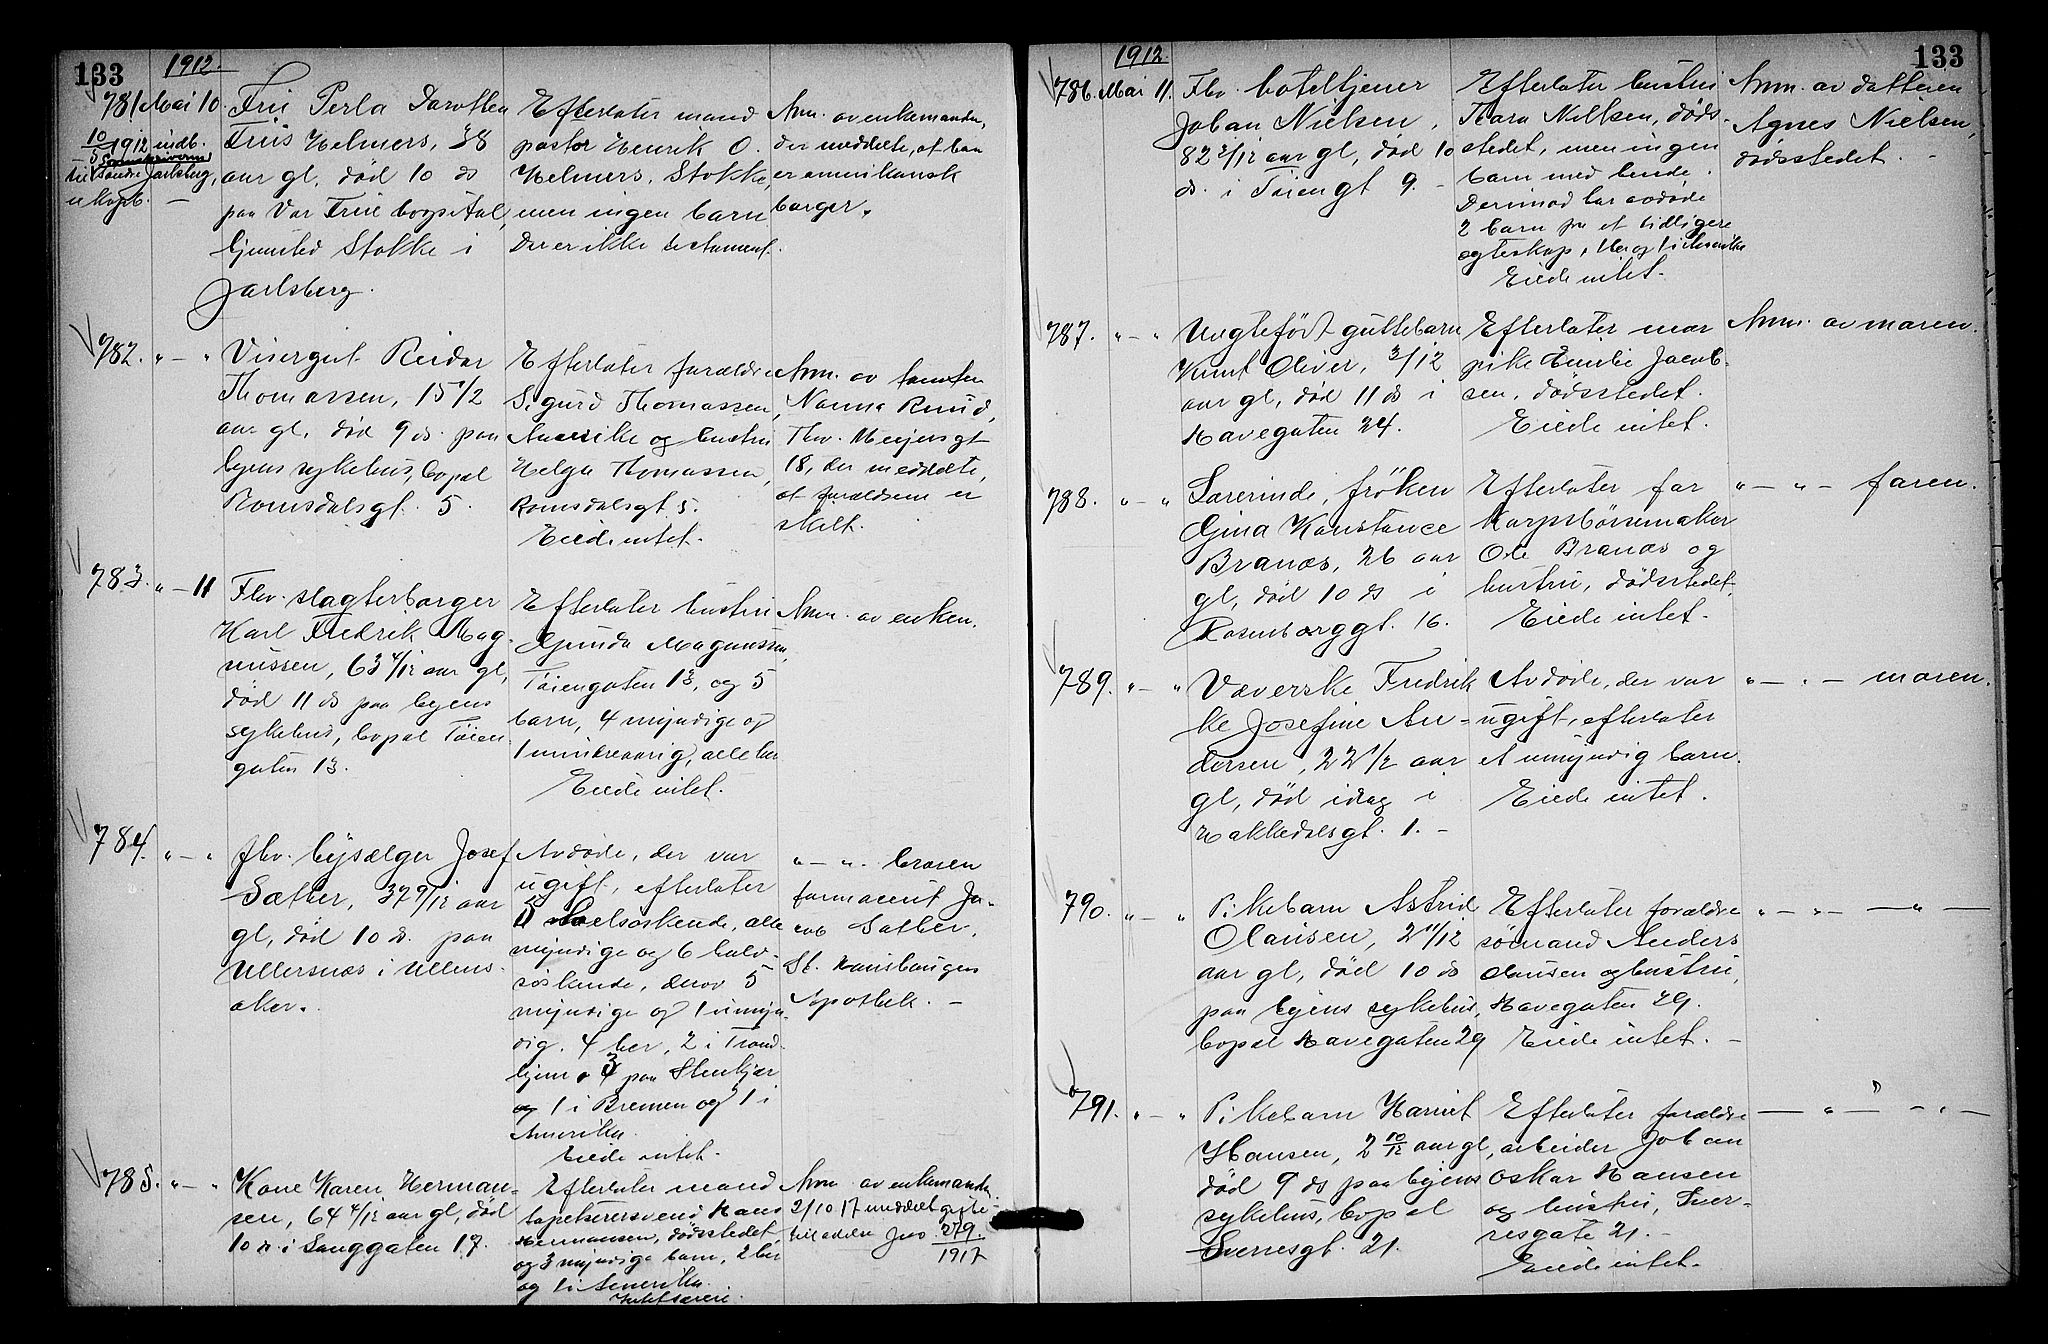 133
1912.
781 Mai 10.
10/5 1912 indb.
til Sorenskriveren
i Søndre Jarlsberg,
ukopb. —
Fru Perla Dorothea
Friis Helmers, 38
aar gl, død 10 ds
paa Vor Frue hospital,
hjemsted Stokke i
Jarlsberg.
Efterlater mand
pastor Henrik O.
Helmers, Stokke,
men ingen barn
Der er ikke testament.
Anm. av enkemanden,
der meddelte, at han
er amerikansk
borger.
782. " — "
Visergut Reidar
Thomassen, 15 1/2
aar gl, død 9 ds. paa
byens sykehus, bopæl
Romsdalsgt. 5.
Efterlater forældre
Sigurd Thomassen,
Amerika og hustru
Helga Thomassen,
Romsdalsgt 5.
Eiede intet.
Anm. av tanten
Nanna Ruud,
Thv. Meyersgt
18, der meddelte,
at forældrene er
skilt.
783. " — 11
Fhv. slagterborger
Karl Fredrik Mag-
nussen, 63 4/12 aar gl,
død 11 ds paa byens
sykehus, bopæl Tøien-
gaten 13.
Efterlater hustru
Gunda Magnussen,
Tøiengaten 13, og 5
barn, 4 myndige og
1 mindreaarig, alle her
Eiede intet.
Anm. av enken.
784. " — "
fhv. bysælger Josef
Sæther, 37 9/12 aar
gl, død 10 ds. paa
Ullersnæs i Ullens-
aker.
Avdøde, der var
ugift, efterlater
5 helsøskende, alle
myndige og 6 halv-
søskende, derav 5
myndige og 1 umyn-
dig. 4 her, 2 i Trond-
hjem, 3 paa Stenkjær
og 1 i Bremen og 1 i
Amerika.
Eiede intet.
" — " broren
farmaceut Ja-
cob Sæther,
St. Hanshaugens
Apothek. —
785. " — "
Kone Karen Herman-
sen, 64 4/12 aar gl, død
10 ds. i Langgaten 17.
Efterlater mand
tapetserersvend Hans
Hermansen, dødsstedet,
og 3 myndige barn, 2 her
og 1 i Amerika.
Anm. av enkemanden.
2/10 17 meddelt gifte-
tilladelse Jno 279/1917
133
1912.
786. Mai 11.
Fhv. hoteltjener
Johan Nielsen,
82 2/12 aar gl, død 10
ds. i Tøiengt 9. —
Efterlater hustru
Thara Nielsen, døds-
stedet, men ingen
barn med hende.
Derimod har avdøde
2 barn fra et tidligere
egteskap, 1 her og 1 i Amerika
Eiede intet.
Anm. av datteren
Agnes Nielsen,
dødsstedet. —
787. " — "
Uegtefødt guttebarn
Knut Oliver, 3/12
aar gl, død 11 ds i
Havegaten 24.
Efterlater mor
pike Emilie Jacob-
sen, dødsstedet.
Eiede intet.
Anm. av moren.
788. " — "
Lærerinde, frøken
Gina Konstance
Branæs, 26 aar
gl, død 10 ds i
Rosenborggt. 16.
Efterlater far
Korpsbørsemaker
Ole Branæs og
hustru, dødsstedet.
Eiede intet.
" — " — faren.
789. " — "
Væverske Fredrik-
ke Josefine An-
dersen, 22 1/2 aar
gl, død idag i
Hakkedalsgt. 1. —
Avdøde, der var
ugift, efterlater
et umyndig barn.
Eiede intet.
" — " — moren.
790. " — "
Pikebarn Astrid
Olausen, 2 11/12
aar gl, død 10 ds
paa byens sykehus,
bopæl Havegaten 29
Efterlater forældre
sømand Anders
Olausen og hustru,
Havegaten 29.
Eiede intet. —
" — " — — " —
791. " — "
Pikebarn Harriet
Hansen, 2 10/12 aar gl,
død 9 ds paa byens
sykehus, bopæl
Sverresgt. 21.
Efterlater forældre
arbeider Johan
Oskar Hansen
og hustru, Sver-
resgate 21. —
Eiede intet.
— " — — " —